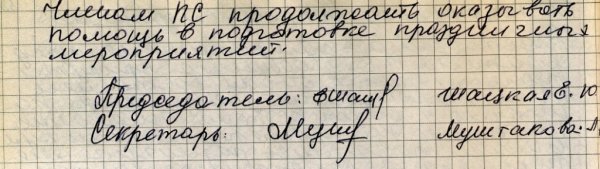 Членам ПС продолжать оказывать
помощь в подготовке праздничных
мероприятий.
Председатель: Шацкая Е. Ю
Секретарь: Муштакова. Л